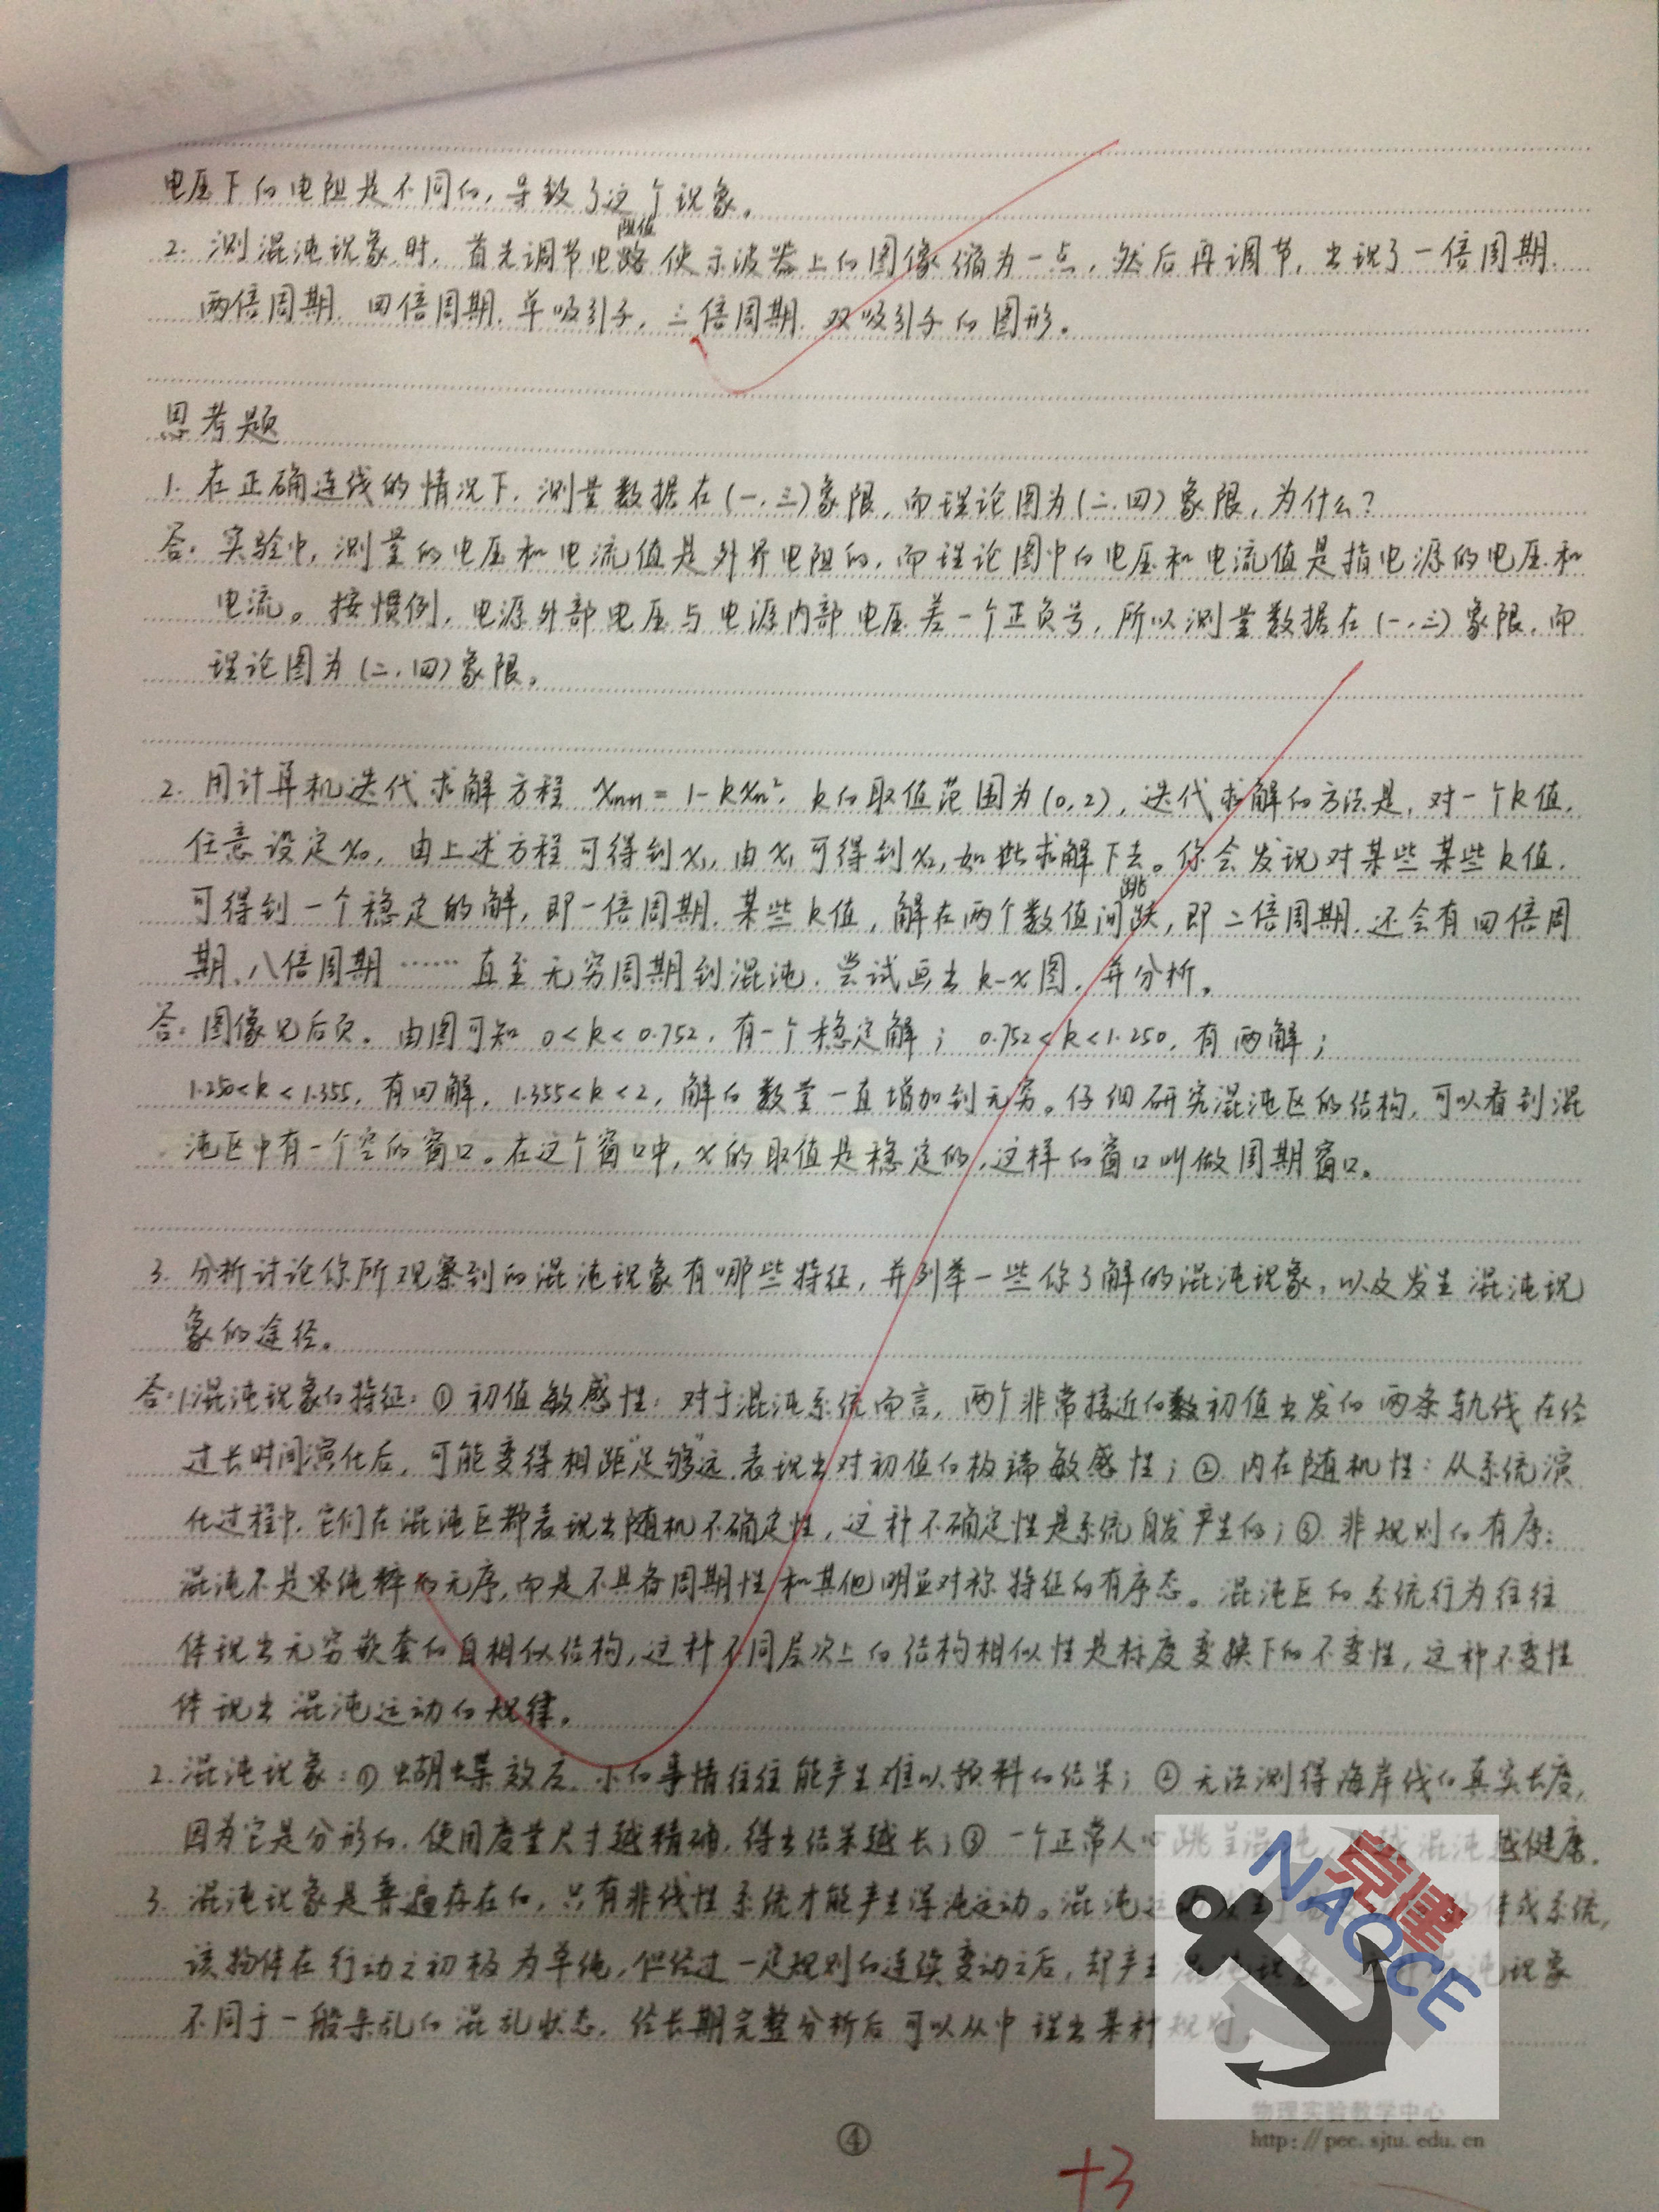 电压下的电阻是不同的，导致了这个现象。
阻值
2. 测混沌现象时，首先调节电路使示波器上的图像缩为一点，然后再调节，出现了一倍周期、
两倍周期、四倍周期、单吸引子、三倍周期、双吸引子的图形。
思考题
1. 在正确连线的情况下，测量数据在(一、三)象限，而理论图为(二、四)象限，为什么？
答：实验中，测量的电压和电流值是外界电阻的，而理论图中的电压和电流值是指电源的电压和
电流。按惯例，电源外部电压与电源内部电压差一个正负号，所以测量数据在(一、三)象限，而
理论图为(二、四)象限。
2. 用计算机迭代求解方程 Xn+1 = 1-kXn²，k的取值范围为(0,2)，迭代求解的方法是，对一个k值，
任意设定X0，由上述方程可得到X1，由X1可得到X2，如此求解下去。你会发现对某些某些k值，
可得到一个稳定的解，即一倍周期，某些k值，解在两个数值间跳跃，即二倍周期，还会有四倍周
期、八倍周期……直至无穷周期到混沌，尝试画出k-x图，并分析。
答：图像见后页。由图可知 0<k<0.752，有一个稳定解；0.752<k<1.250，有两解；
1.250<k<1.355，有四解，1.355<k<2，解的数量一直增加到无穷。仔细研究混沌区的结构，可以看到混
沌区中有一个空的窗口。在这个窗口中，x的取值是稳定的，这样的窗口叫做周期窗口。
3. 分析讨论你所观察到的混沌现象有哪些特征，并列举一些你了解的混沌现象，以及发生混沌现
象的途径。
答：1.混沌现象的特征：① 初值敏感性：对于混沌系统而言，两个非常接近的初值出发的两条轨线在经
过长时间演化后，可能变得相距“足够”远，表现出对初值的极端敏感性；② 内在随机性：从系统演
化过程中，它们在混沌区都表现出随机不确定性，这种不确定性是系统自发产生的；③ 非规则的有序：
混沌不是纯粹的无序，而是不具备周期性和其他明显对称特征的有序态。混沌区的系统行为往往
体现出无穷嵌套的自相似结构，这种不同层次上的结构相似性是标度变换下的不变性，这种不变性
体现出混沌运动的规律。
2. 混沌现象：① 蝴蝶效应，小的事情往往能产生难以预料的结果；② 无法测得海岸线的真实长度，
因为它是分形的，使用度量尺寸越精确，得出结果越长；③ 一个正常人心跳呈混沌，越混沌越健康。
3. 混沌现象是普遍存在的，只有非线性系统才能产生浑沌运动。混沌运动发生于 物体或系统，
该物体在行动之初极为单纯，但经过一定规则的连续变动之后，却产生混沌现象。混沌现象
不同于一般杂乱的混乱状态，经长期完整分析后可以从中理出某种规则。
克健
NAOCE
物理实验教学中心
http://pec.sjtu.edu.cn
④
+3